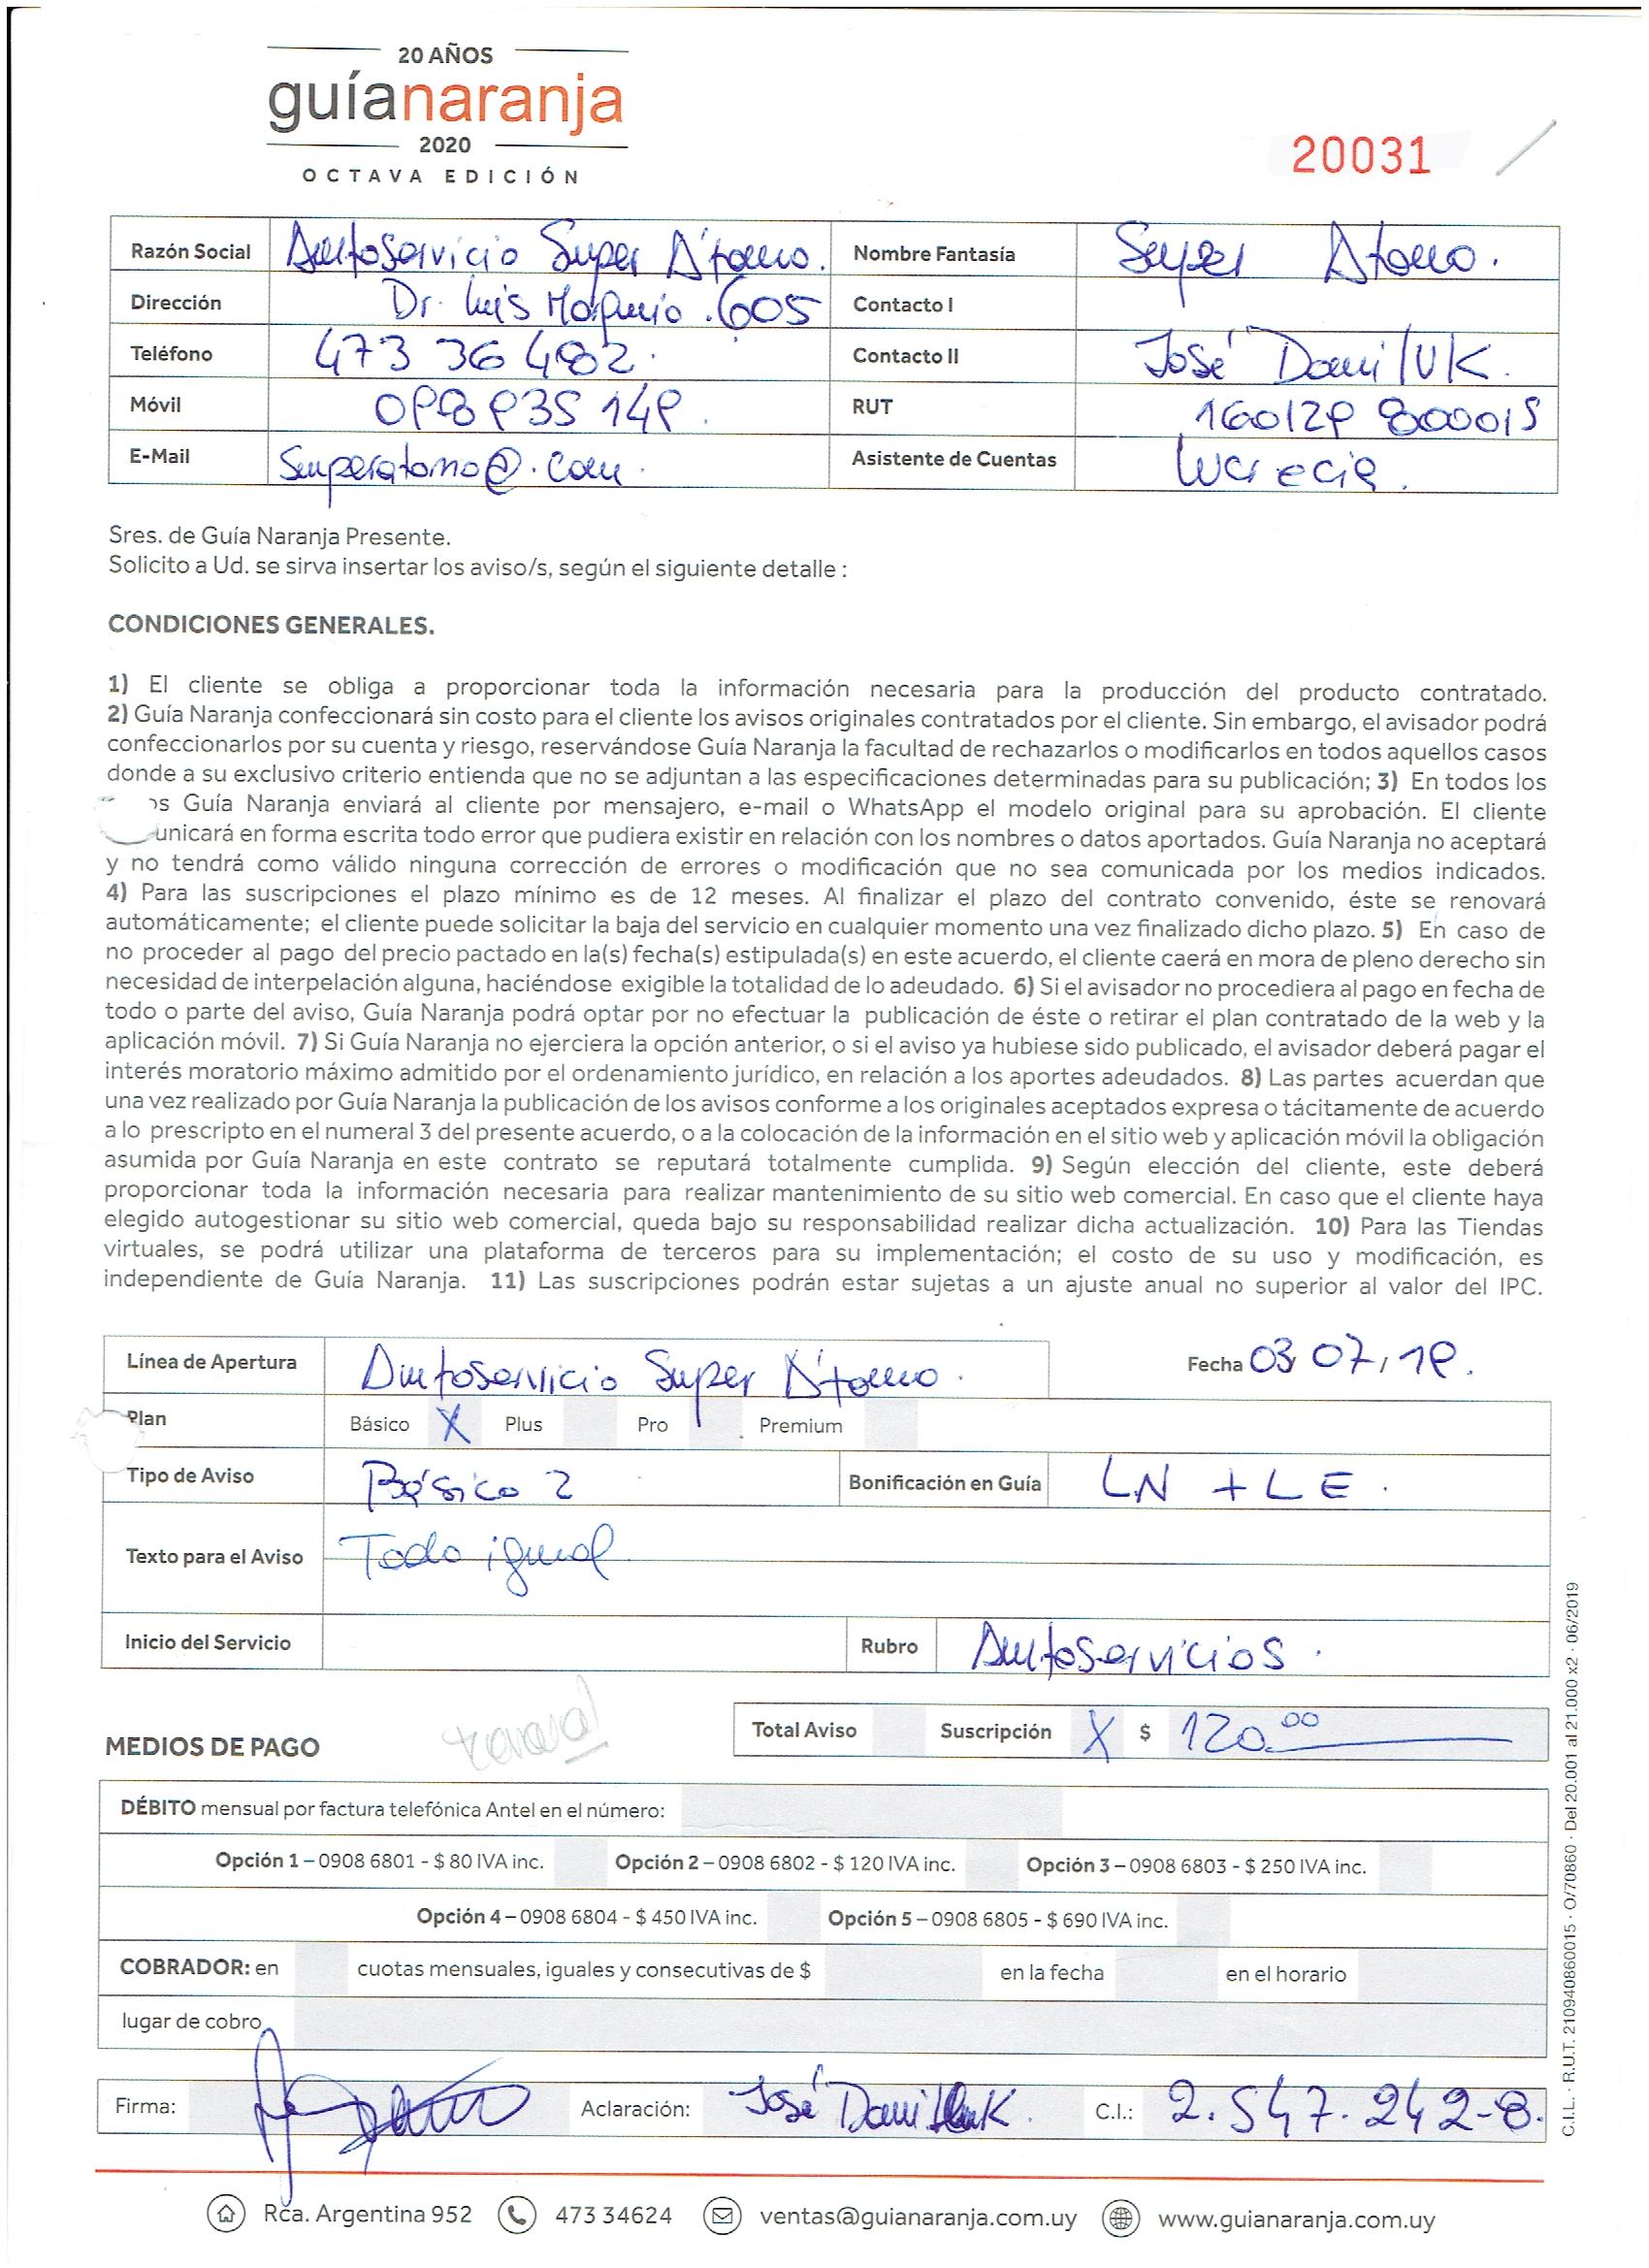 20 AÑOS
guíanaranja
2020
OCTAVA EDICIÓN
20031
Razón Social Autoservicio Super Átomo. Nombre Fantasía Super Atomo.
Dirección Dr. Luis Morquio. 605 Contacto I
Teléfono 473 36482. Contacto II José Daniluk.
Móvil 098 935 149. RUT 160129 800015
E-Mail Superatomo@.com. Asistente de Cuentas Lucrecia.
Sres. de Guía Naranja Presente.
Solicito a Ud. se sirva insertar los aviso/s, según el siguiente detalle :
CONDICIONES GENERALES.
1) El cliente se obliga a proporcionar toda la información necesaria para la producción del producto contratado.
2) Guía Naranja confeccionará sin costo para el cliente los avisos originales contratados por el cliente. Sin embargo, el avisador podrá
confeccionarlos por su cuenta y riesgo, reservándose Guía Naranja la facultad de rechazarlos o modificarlos en todos aquellos casos
donde a su exclusivo criterio entienda que no se adjuntan a las especificaciones determinadas para su publicación; 3) En todos los
os Guía Naranja enviará al cliente por mensajero, e-mail o WhatsApp el modelo original para su aprobación. El cliente
unicará en forma escrita todo error que pudiera existir en relación con los nombres o datos aportados. Guía Naranja no aceptará
y no tendrá como válido ninguna corrección de errores o modificación que no sea comunicada por los medios indicados.
4) Para las suscripciones el plazo mínimo es de 12 meses. Al finalizar el plazo del contrato convenido, éste se renovará
automáticamente; el cliente puede solicitar la baja del servicio en cualquier momento una vez finalizado dicho plazo. 5) En caso de
no proceder al pago del precio pactado en la(s) fecha(s) estipulada(s) en este acuerdo, el cliente caerá en mora de pleno derecho sin
necesidad de interpelación alguna, haciéndose exigible la totalidad de lo adeudado. 6) Si el avisador no procediera al pago en fecha de
todo o parte del aviso, Guía Naranja podrá optar por no efectuar la publicación de éste o retirar el plan contratado de la web y la
aplicación móvil. 7) Si Guía Naranja no ejerciera la opción anterior, o si el aviso ya hubiese sido publicado, el avisador deberá pagar el
interés moratorio máximo admitido por el ordenamiento jurídico, en relación a los aportes adeudados. 8) Las partes acuerdan que
una vez realizado por Guía Naranja la publicación de los avisos conforme a los originales aceptados expresa o tácitamente de acuerdo
a lo prescripto en el numeral 3 del presente acuerdo, o a la colocación de la información en el sitio web y aplicación móvil la obligación
asumida por Guía Naranja en este contrato se reputará totalmente cumplida. 9) Según elección del cliente, este deberá
proporcionar toda la información necesaria para realizar mantenimiento de su sitio web comercial. En caso que el cliente haya
elegido autogestionar su sitio web comercial, queda bajo su responsabilidad realizar dicha actualización. 10) Para las Tiendas
virtuales, se podrá utilizar una plataforma de terceros para su implementación; el costo de su uso y modificación, es
independiente de Guía Naranja. 11) Las suscripciones podrán estar sujetas a un ajuste anual no superior al valor del IPC.
Línea de Apertura Autoservicio Super Átomo. Fecha 03 07/19.
Plan Básico X Plus Pro Premium
Tipo de Aviso Básico 2 Bonificación en Guía LN + LE.
Texto para el Aviso Todo igual
Inicio del Servicio Rubro Autoservicios.
Total Aviso Suscripción X $ 120.00
MEDIOS DE PAGO
DÉBITO mensual por factura telefónica Antel en el número:
Opción 1 – 0908 6801 - $ 80 IVA inc. Opción 2 – 0908 6802 - $ 120 IVA inc. Opción 3 – 0908 6803 - $ 250 IVA inc.
Opción 4 – 0908 6804 - $ 450 IVA inc. Opción 5 – 0908 6805 - $ 690 IVA inc.
COBRADOR: en cuotas mensuales, iguales y consecutivas de $ en la fecha en el horario
lugar de cobro
Firma: Aclaración: José Daniluk. C.I.: 2.547.242-8.
Rca. Argentina 952 473 34624 ventas@guianaranja.com.uy www.guianaranja.com.uy
C.I.L. · R.U.T. 210940860015 · O/70860 · Del 20.001 al 21.000 x2 · 06/2019